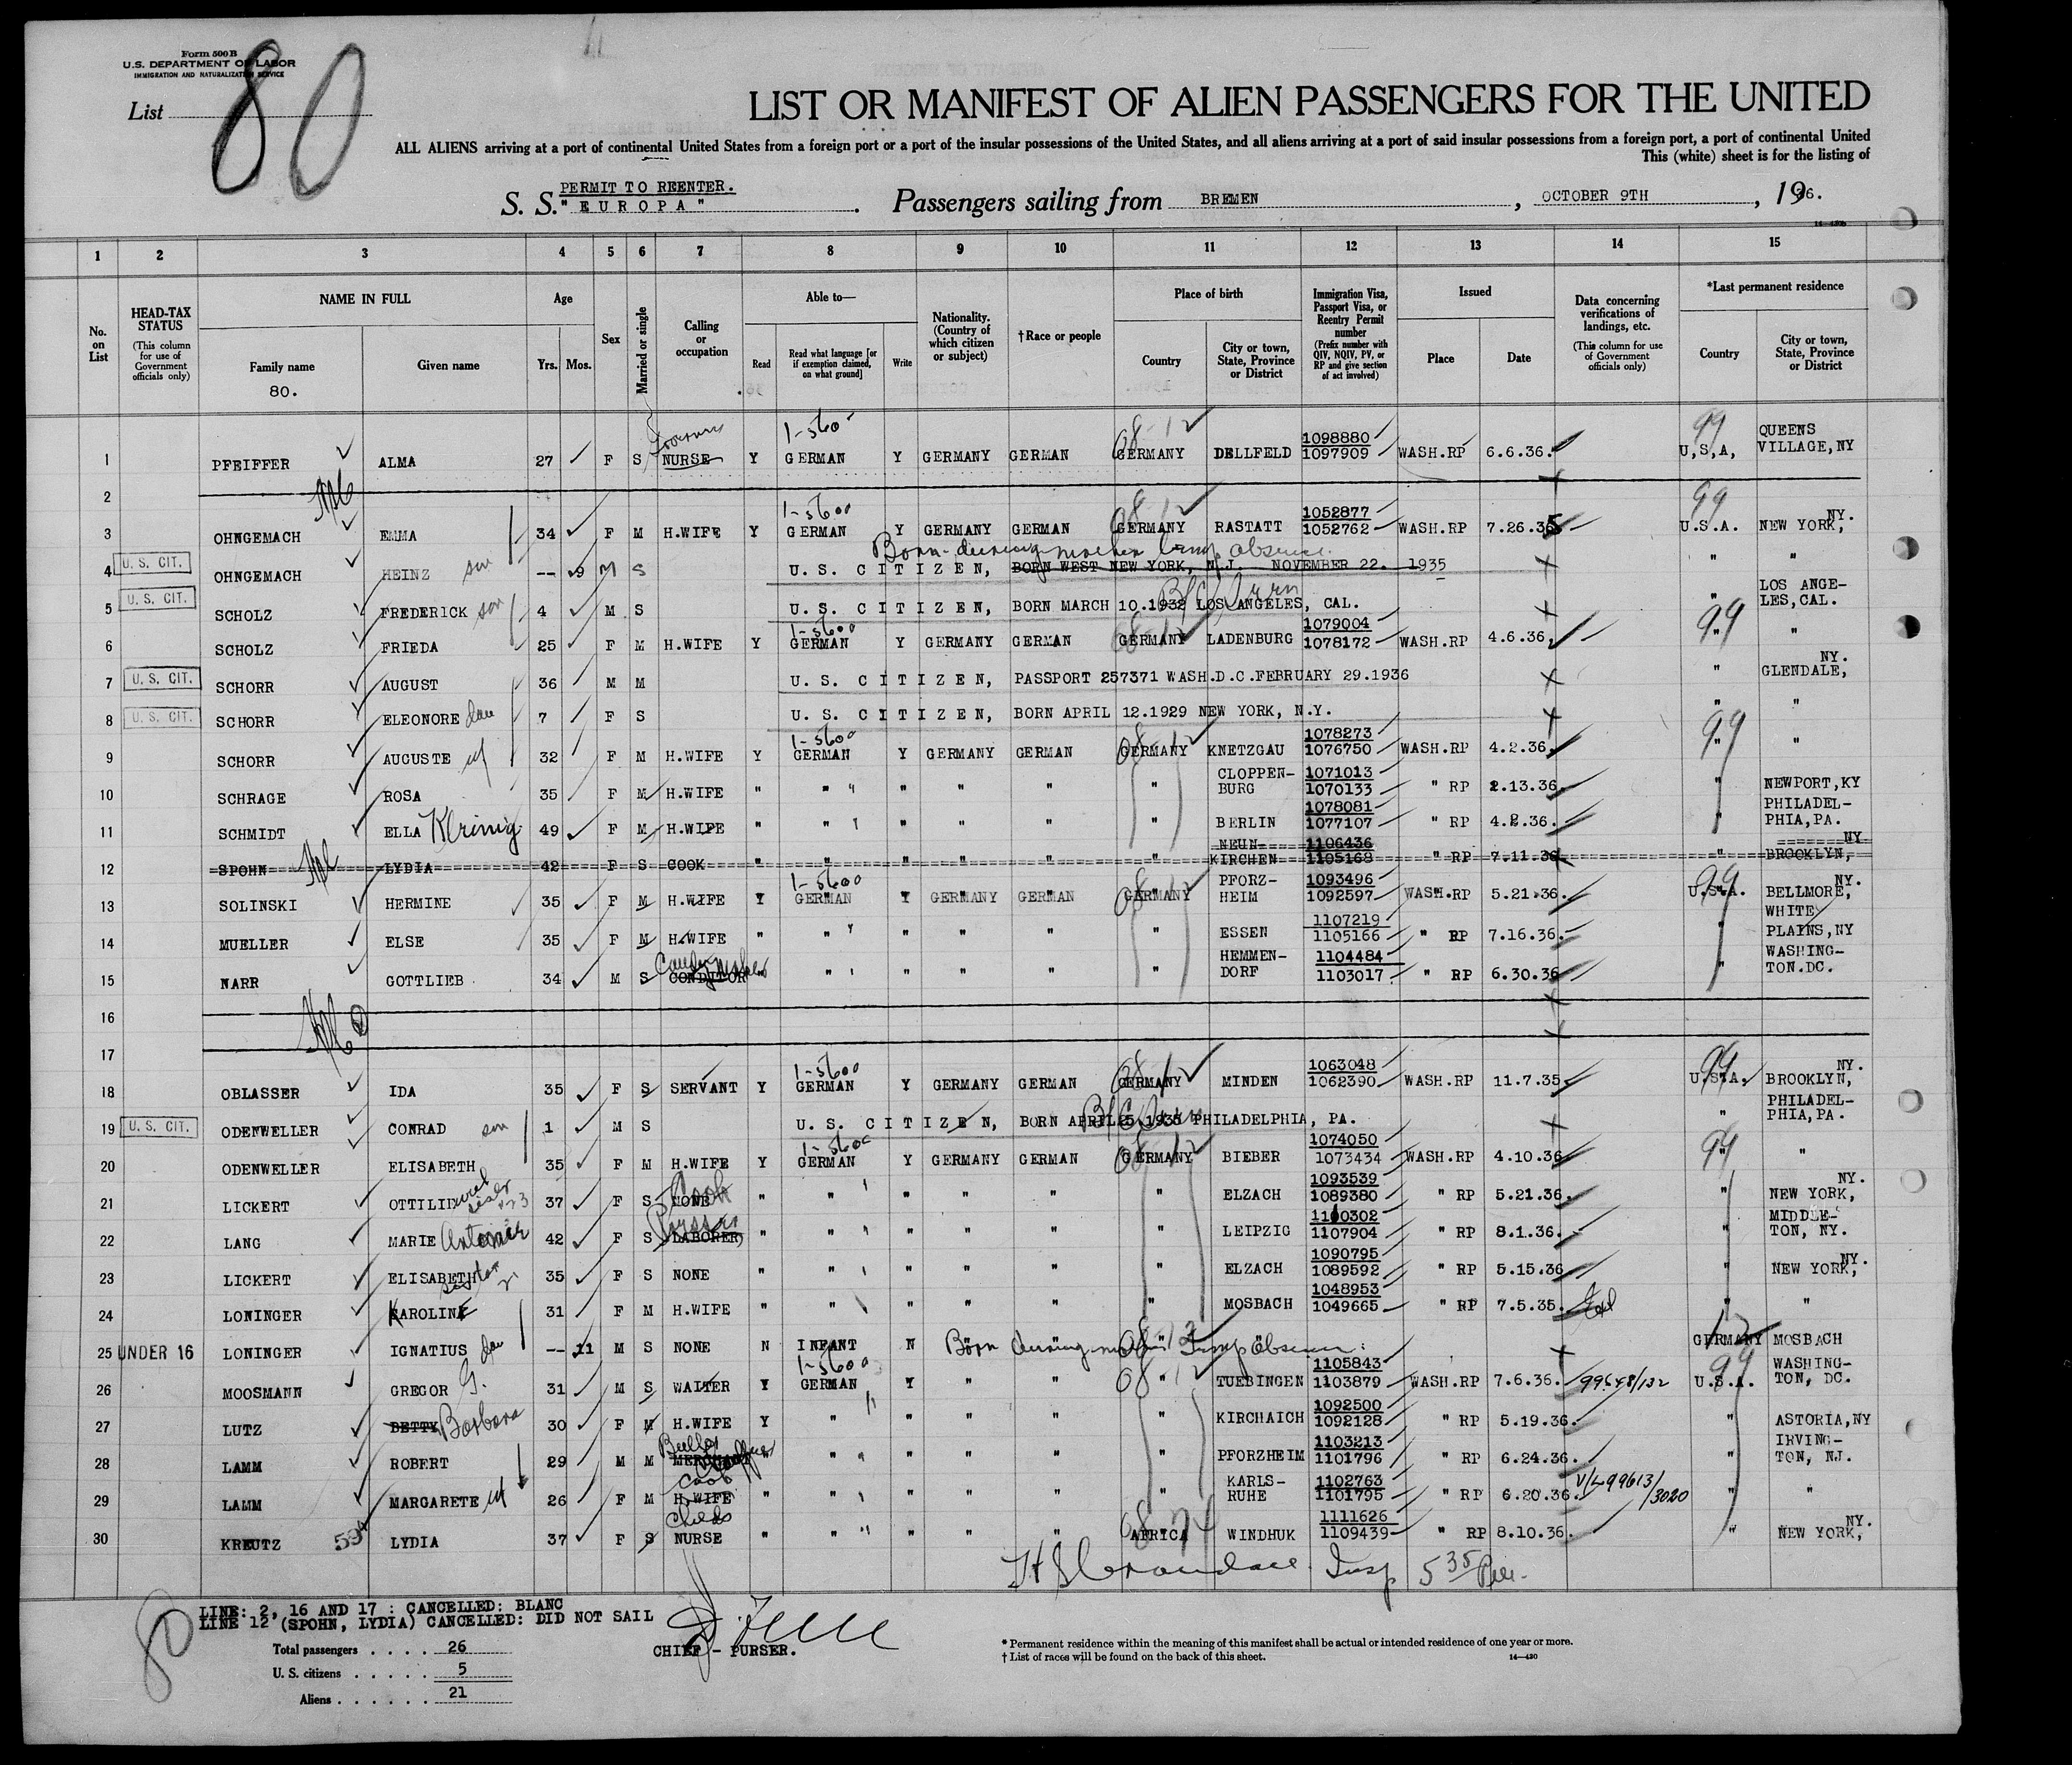 Form 500 B
U.S. DEPARTMENT OF LABOR
IMMIGRATION AND NATURALIZATION SERVICE
List 80
LIST OR MANIFEST OF ALIEN PASSENGERS FOR THE UNITED
ALL ALIENS arriving at a port of continental United States from a foreign port or a port of the insular possessions of the United States, and all aliens arriving at a port of said insular possessions from a foreign port, a port of continental United
This (white) sheet is for the listing of
PERMIT TO REENTER.
S. S. "EUROPA" . Passengers sailing from BREMEN , OCTOBER 9TH , 1936.
1 2 3 4 5 6 7 8 9 10 11 12 13 14 15
No. on List
HEAD-TAX STATUS (This column for use of Government officials only)
NAME IN FULL
Family name
80.
Given name
Age
Yrs. Mos.
Sex
Married or single
Calling or occupation
Able to—
Read
Read what language [or if exemption claimed, on what ground]
Write
Nationality. (Country of which citizen or subject)
†Race or people
Place of birth
Country
City or town, State, Province or District
Immigration Visa, Passport Visa, or Reentry Permit number (Prefix number with QIV, NQIV, PV, or RP and give section of act involved)
Issued
Place
Date
Data concerning verifications of landings, etc. (This column for use of Government officials only)
*Last permanent residence
Country
City or town, State, Province or District
1 PFEIFFER ALMA 27 F S NURSE Y GERMAN Y GERMANY GERMAN GERMANY DELLFELD 1098880 1097909 WASH.RP 6.6.36. U,S,A, QUEENS VILLAGE,NY
2
3 OHNGEMACH EMMA 34 F M H.WIFE Y GERMAN Y GERMANY GERMAN GERMANY RASTATT 1052877 1052762 WASH.RP 7.26.35 U.S.A. NEW YORK, NY.
Born during mother temp absence.
4 U. S. CIT. OHNGEMACH HEINZ son -- 9 M S U. S. CITIZEN, BORN WEST NEW YORK, N.J. NOVEMBER 22. 1935 " "
5 U. S. CIT. SCHOLZ FREDERICK son 4 M S U. S. CITIZEN, BORN MARCH 10.1932 LOS ANGELES, CAL. " LOS ANGELES,CAL.
6 SCHOLZ FRIEDA 25 F M H.WIFE Y GERMAN Y GERMANY GERMAN GERMANY LADENBURG 1079004 1078172 WASH.RP 4.6.36. " "
7 U. S. CIT. SCHORR AUGUST 36 M M U. S. CITIZEN, PASSPORT 257371 WASH.D.C.FEBRUARY 29.1936 " GLENDALE, NY.
8 U. S. CIT. SCHORR ELEONORE dau 7 F S U. S. CITIZEN, BORN APRIL 12.1929 NEW YORK, N.Y. " "
9 SCHORR AUGUSTE wf 32 F M H.WIFE Y GERMAN Y GERMANY GERMAN GERMANY KNETZGAU 1078273 1076750 WASH.RP 4.2.36. " "
10 SCHRAGE ROSA 35 F M H.WIFE " " " " " " CLOPPENBURG 1071013 1070133 " RP 2.13.36. " NEWPORT,KY
11 SCHMIDT ELLA 49 F M H.WIFE " " " " " " BERLIN 1078081 1077107 " RP 4.2.36. " PHILADELPHIA,PA.
12 SPOHN LYDIA 42 F S COOK " " " " " " NEUNKIRCHEN 1106436 1105168 " RP 7.11.36 " BROOKLYN, NY.
13 SOLINSKI HERMINE 35 F M H.WIFE Y GERMAN Y GERMANY GERMAN GERMANY PFORZHEIM 1093496 1092597 WASH.RP 5.21.36. U.S.A. BELLMORE, NY.
14 MUELLER ELSE 35 F M H.WIFE " " " " " " ESSEN 1107219 1105166 " RP 7.16.36. " WHITE PLAINS,NY
15 NARR GOTTLIEB 34 M S CONDITOR Candy maker " " " " " " HEMMENDORF 1104484 1103017 " RP 6.30.36 " WASHINGTON.DC.
16
17
18 OBLASSER IDA 35 F S SERVANT Y GERMAN Y GERMANY GERMAN GERMANY MINDEN 1063048 1062390 WASH.RP 11.7.35. U.S.A. BROOKLYN, NY.
19 U. S. CIT. ODENWELLER CONRAD son 1 M S U. S. CITIZEN, BORN APRIL 25.1935 PHILADELPHIA, PA. " PHILADELPHIA,PA.
20 ODENWELLER ELISABETH 35 F M H.WIFE Y GERMAN Y GERMANY GERMAN GERMANY BIEBER 1074050 1073434 WASH.RP 4.10.36 " "
21 LICKERT OTTILIE 37 F S Cook " " " " " " ELZACH 1093539 1089380 " RP 5.21.36. " NEW YORK, NY.
22 LANG MARIE 42 F S LABORER " " " " " " LEIPZIG 1110302 1107904 " RP 8.1.36. " MIDDLETON, NY.
23 LICKERT ELISABETH sister 35 F S NONE " " " " " " ELZACH 1090795 1089592 " RP 5.15.36 " NEW YORK, NY.
24 LONINGER KAROLINE 31 F M H.WIFE " " " " " " MOSBACH 1048953 1049665 " RP 7.5.35. " "
25 UNDER 16 LONINGER IGNATIUS -- 11 M S NONE N INFANT N Born during mother Temp absence. GERMANY MOSBACH
26 MOOSMANN GREGOR G. 31 M S WAITER Y GERMAN Y " " " TUEBINGEN 1105843 1103879 WASH.RP 7.6.36. 99648/132 U.S.A. WASHINGTON, DC.
27 LUTZ BETTY Barbara 30 F M H.WIFE Y " " " " " KIRCHAICH 1092500 1092128 " RP 5.19.36. " ASTORIA,NY
28 LAMM ROBERT 29 M M Butler " " " " " " PFORZHEIM 1103213 1101796 " RP 6.24.36. " IRVINGTON, NJ.
29 LAMM MARGARETE wf 26 F M H.WIFE Cook " " " " " " KARLSRUHE 1102763 1101795 " RP 6.20.36. V/L 99613/3020 " "
30 KREUTZ LYDIA 37 F S Childs NURSE " " " " " AFRICA WINDHUK 1111626 1109439 " RP 8.10.36. " NEW YORK, NY.
Insp 5 35 Pm.
LINE: 2, 16 AND 17 : CANCELLED: BLANC
LINE 12 (SPOHN, LYDIA) CANCELLED: DID NOT SAIL
80
Total passengers . . . . 26
U. S. citizens . . . . . 5
Aliens . . . . . . 21
CHIEF - PURSER.
* Permanent residence within the meaning of this manifest shall be actual or intended residence of one year or more.
† List of races will be found on the back of this sheet.
14—430